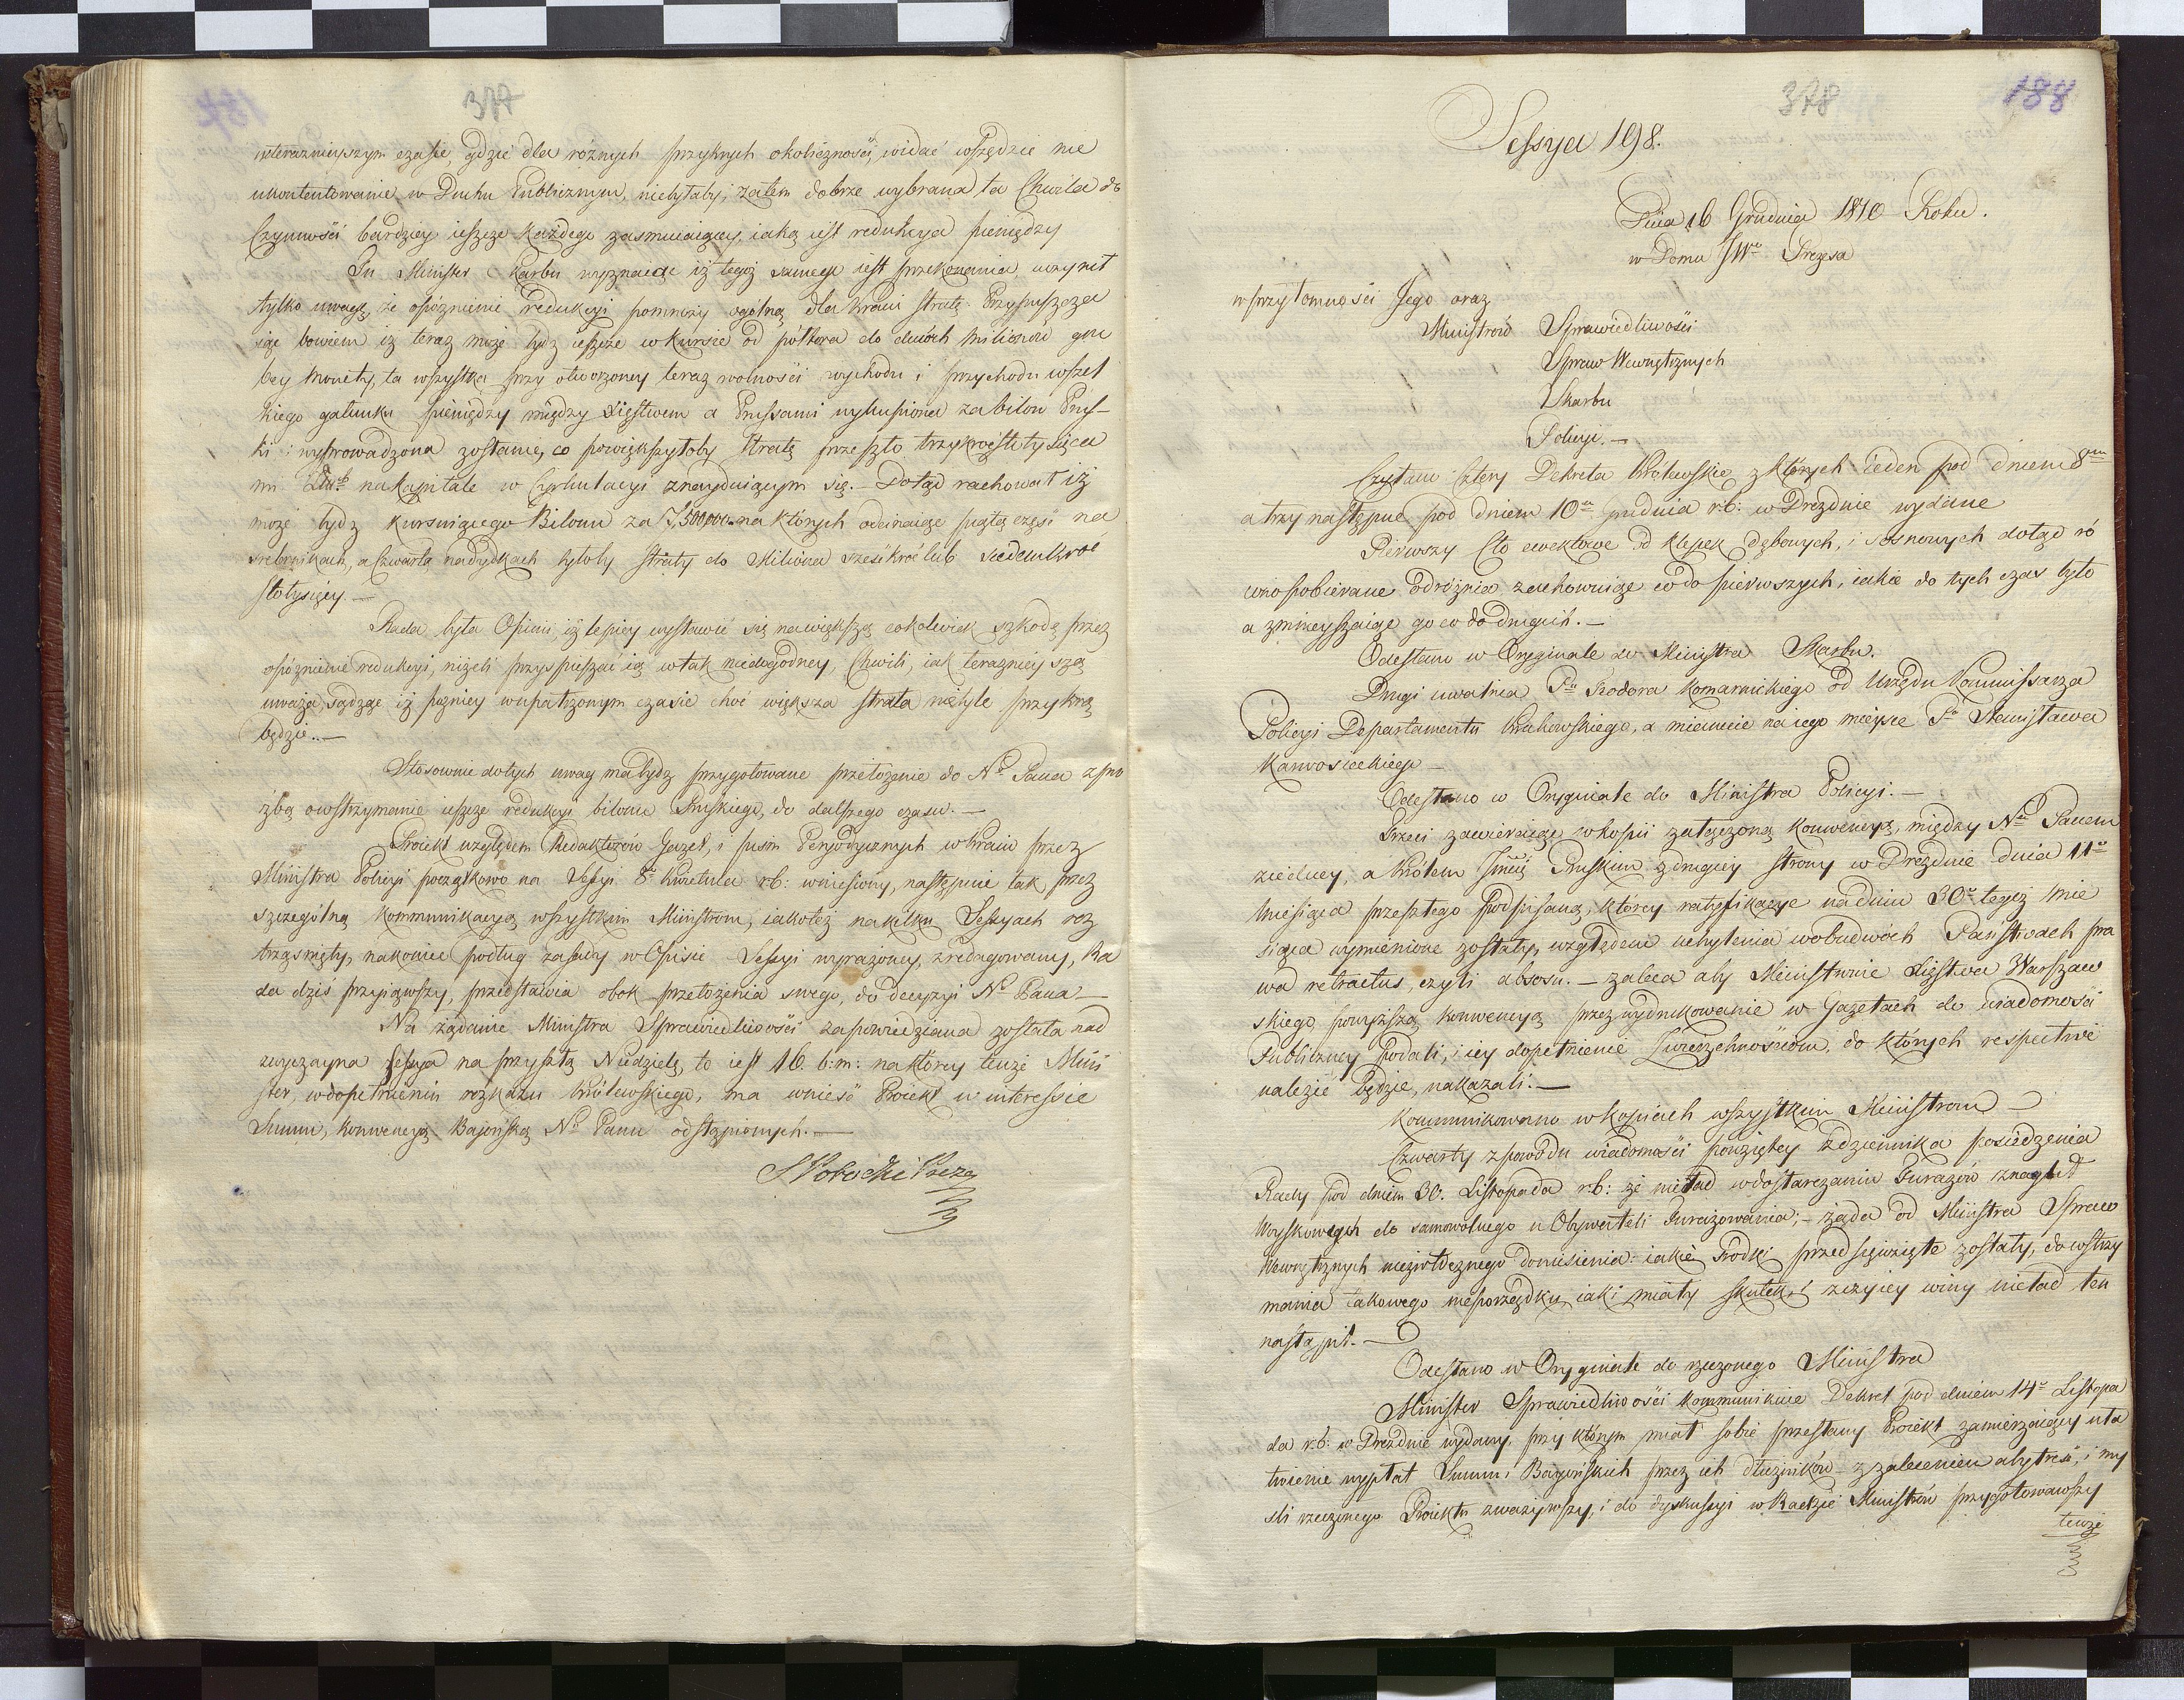 377
wteraznieyszym czasie, gdzie dla różnych przykrych okoliczności, widać wszędzie nie
ukontentowanie w Duchu Publicznym, niebyłaby, zatem dobrze wybrana ta Chwila do
Czynności bardziey ieszcze każdego zasmucaiącey, iaką iest redukcya pieniędzy
Pn Minister Skarbu wyznaiąc iż tegoż samego iest przekonania, uczynił
tylko uwagę, że opóźnienie redukcyi pomnoży ogólną dla kraiu stratę. Przypuszcza
się bowiem iż teraz może bydz ieszcze w kursie od półtora do dwóch milionów gru
bey monety, ta wszystka przy otworzoney teraz wolności wychodu i przychodu wszel
kiego gatunku pieniędzy między Xięstwem a Prussami wykupiona za bilon Prus-
ki i wyprowadzona zostanie, co powiększyłoby stratę przeszło trzykroć stutysięca
mi na kapitale w Cyrkulacyi znayduiącym się. - Dotąd rachował iż
może bydz kursuiącego Bilonu za 7,500,000. na których odcinaiąc piątą część na
srebrnikach, a Czwartą na dydkach byłoby straty do Miliona sześćkroć lub siedemkroć
stotysięcy. -
Rada była Opinii, iż lepiey wystawić się na większą cokolwiek szkodę przez
opóźnienie redukcyi, niżeli przyspieszać ią w tak niedogodney Chwili, iak teraznieyszą
uważa, sądząc iż pozniey wupatrzonym czasie choć większa strata nietyle przykrą
będzie. -
Stosownie do tych uwag ma bydz przygotowane przełożenie do No Pana z pro
źbą o wstrzymanie ieszcze redukcyi bilonu Pruskiego, do dalszego czasu. -
Proiekt względem Redaktorów Gazet, i pism Peryodycznych w kraiu przez
Ministra Policyi początkowo na Sessyi 8o Kwietnia r.b: wniesiony, następnie tak przez
szczególną kommunikacyą wszystkim Ministrom, iakoteż na kilku Sessyach roz
trząśnięty, nakoniec podług zasady w Opisie Sessyi wyrażoney, zredagowany, Ra
da dziś przyiąwszy, przedstawia obok przełożenia swego, do decyzyi No Pana -
Na żądanie Ministra Sprawiedliwości zapowiedziana została nad
zwyczayna Sessya na przyszłą Niedzielę, to iest 16. b:m: na którey tenże Mini
ster, wdopełnieniu rozkazu Królewskiego, ma wnieść Proiekt w interessie
Summ, konwencyą Bajońską No Panu odstąpionych. -
S Potocki Prezes
378
188
Sessya 198.
Dnia 16 Grudnia 1810 Roku.
w Domu JWo Prezesa
w przytomności Jego oraz
Ministrów Sprawiedliwości
Spraw Wewnętrznych
Skarbu
Policyi. -
Czytano Cztery Dekreta Królewskie, z których ieden pod dniem 8m
a trzy następne pod dniem 10o grudnia r.b: w Dreznie wydane
Pierwszy Cło ewektowe od klepek dębowych, i sosnowych dotąd ró
wno pobierane odróżnia, zachowuiąc co do pierwszych, iakie do tych czas było
a zmnieyszaiąc go co do drugich. -
Odesłano w Oryginale do Ministra Skarbu.
Drugi uwalnia Pa Teodora Komarnickiego od Urzędu Kommissarza
Policyi Departamentu Krakowskiego, a mianuie na iego mieysce Po Stanisława
Karwosieckiego -
Odesłano w Oryginale do Ministra Policyi. -
Trzeci zawieraiąc w kopii załączoną konwencyą, między No Panem
ziedney, a Królem Jmcią Pruskim z drugiey strony w Dreznie dnia 11o
Miesiąca przeszłego podpisaną, którey ratyfikacye na dniu 30o tegoż mie
siąca wymienione zostały, względem uchylenia wobudwóch Państwach pra
wa retractus, czyli abzosu. - zaleca aby Ministrowie Xięstwa Warszaw
skiego powyższą konwencyą przez wydrukowanie w Gazetach do wiadomości
Publiczney podali, i iey dopełnienie Zwierzchnościom, do których respective
należeć będzie, nakazali. -
Kommunikowano w kopiach wszystkim Ministrom -
Czwarty z powodu wiadomości powziętey z dziennika posiedzenia
Rady pod dniem 30. Listopada r.b: że nieład w dostarczaniu Furażów znaglił
Woyskowych do samowolnego u Obywateli furażowania; - żąda od Ministra Spraw
Wewnętrznych niezwłocznego doniesienia: iakie środki przedsięwzięte zostały, do wstrzy
mania takowego nieporządku, iaki miały skutek, i z czyiey winy nieład ten
nastąpił. -
Odesłano w Oryginale do rzeczonego Ministra
Minister Sprawiedliwości kommunikuie Dekret pod dniem 14o Listopa
da r.b: w Dreznie wydany, przy którym miał sobie przesłany Proiekt zamierzaiący uła
twienie wypłat Summ Bajońskich przez ich dłużników - z zaleceniem aby treść, i my
śli rzeczonego Proiektu zważywszy, i do dyskussyi w Radzie Ministrów przygotowawszy
tenże